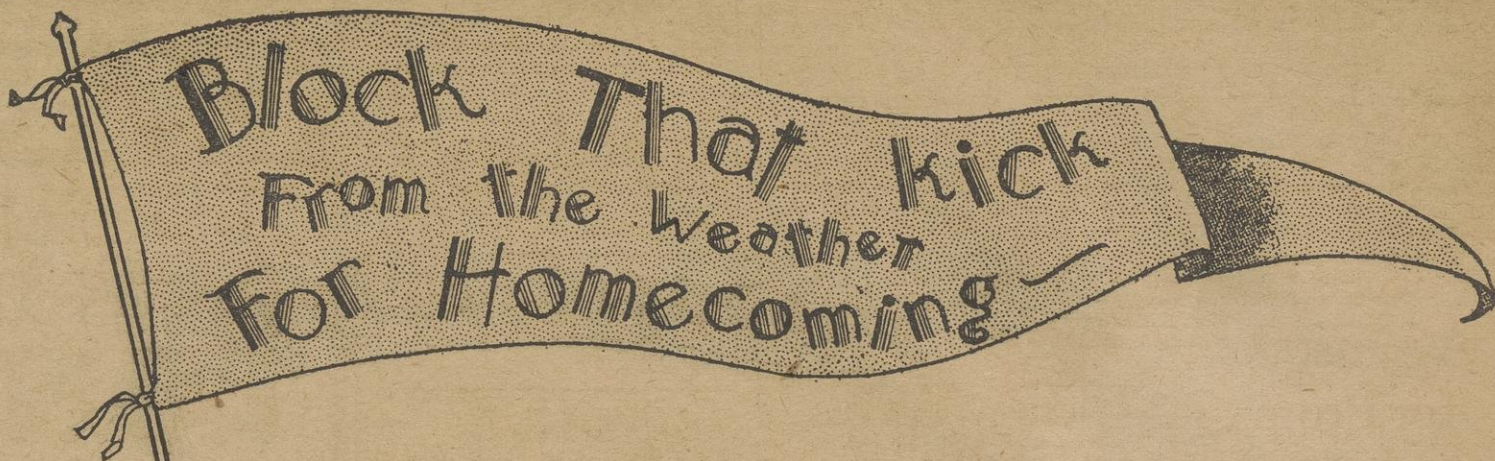 Block That kick
From the Weather
For Homecoming